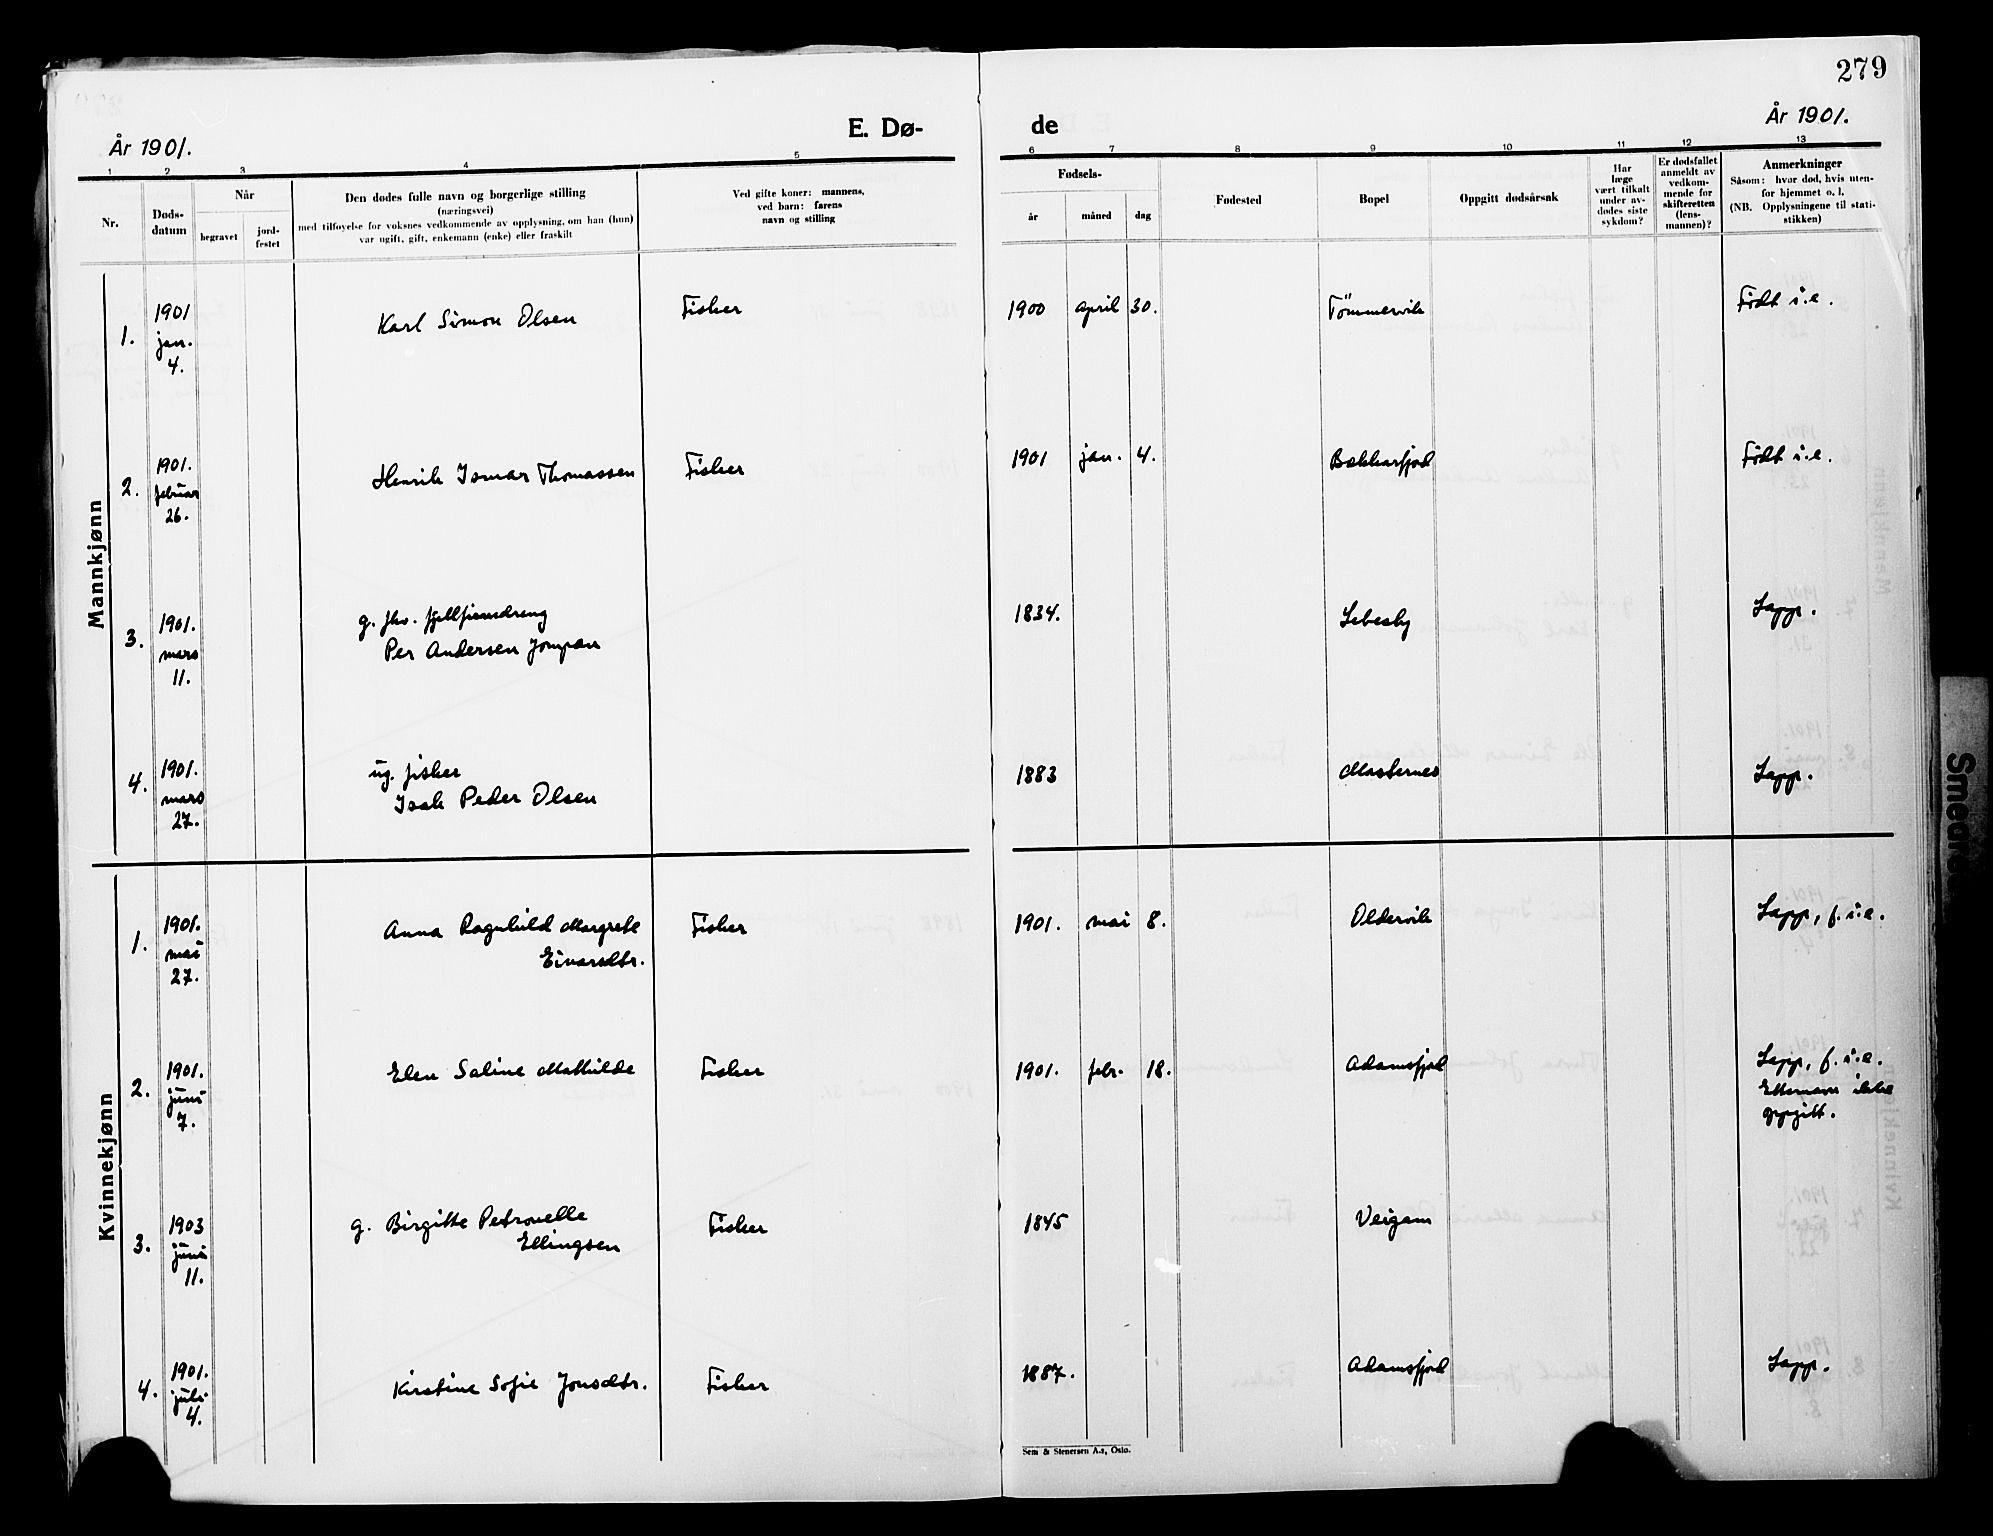 279
År 1901.
E. Dø-
de
År 1901.
1 2 3 4 5 6 7 8 9 10 11 12 13
Nr.
Døds-
datum
Når
begravet
jord-
festet
Den dødes fulle navn og borgerlige stilling
(næringsvei)
med tilføyelse for voksnes vedkommende av opplysning, om han (hun)
var ugift, gift, enkemann (enke) eller fraskilt
Ved gifte koner: mannens,
ved barn: farens
navn og stilling
Fødsels-
år måned dag
Fødested
Bopel
Oppgitt dødsårsak
Har
læge
vært tilkalt
under av-
dødes siste
sykdom?
Er dødsfallet
anmeldt av
vedkom-
mende for
skifteretten
(lens-
mannen)?
Anmerkninger
Såsom: hvor død, hvis uten-
for hjemmet o. l.
(NB. Opplysningene til stati-
stikken)
Mannkjønn
1.
1901
jan.
4.
Karl Simon Olsen
Fisker
1900 april 30.
Tömmervik
Født i.e.
2.
1901.
februar
26.
Henrik Ismar Thomassen
Fisker
1901 jan. 4.
Bekkarfjord
Født i.e.
3.
1901.
mars
11.
g. fhv. fjellfinndreng
Per Andersen Jompan
1834.
Lebesby
Lapp.
4.
1901.
mars
27.
ug. fisker
Isak Peder Olsen
1883
Masternes
Lapp.
Kvinnekjønn
1.
1901.
mai
27.
Anna Ragnhild Margrete
Eivarsdtr.
Fisker
1901. mai 8.
Oldervik
Lapp, f. i.e.
2.
1901.
juni
7.
Elen Saline Mathilde
Fisker
1901. febr. 18.
Adamsfjord
Lapp, f. i.e.
Etternavn ikke
oppgitt.
3.
1903
juni
11.
g. Birgitte Petronelle
Ellingsen
Fisker
1845
Veigem
4.
1901.
juli
4.
Kirstine Sofie Jonsdtr.
Fisker
1887.
Adamsfjord
Lapp.
Sem & Stenersen A.s, Oslo.